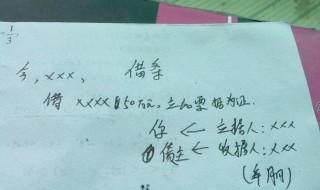 1/3,
今, xxx, 借条
借 xxxx 50万元, 立此要据为证.
你 ← 立据人: xxx
借主 ← 收据人: xx
(年月日)